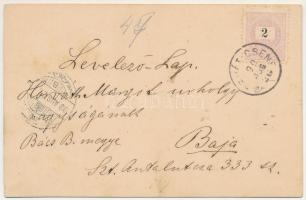 2
Levelező-Lap.
Horváth Margit úrhölgy
nagyságának
Bács B. megye Baja
Szt. Antal utca 333 sz.